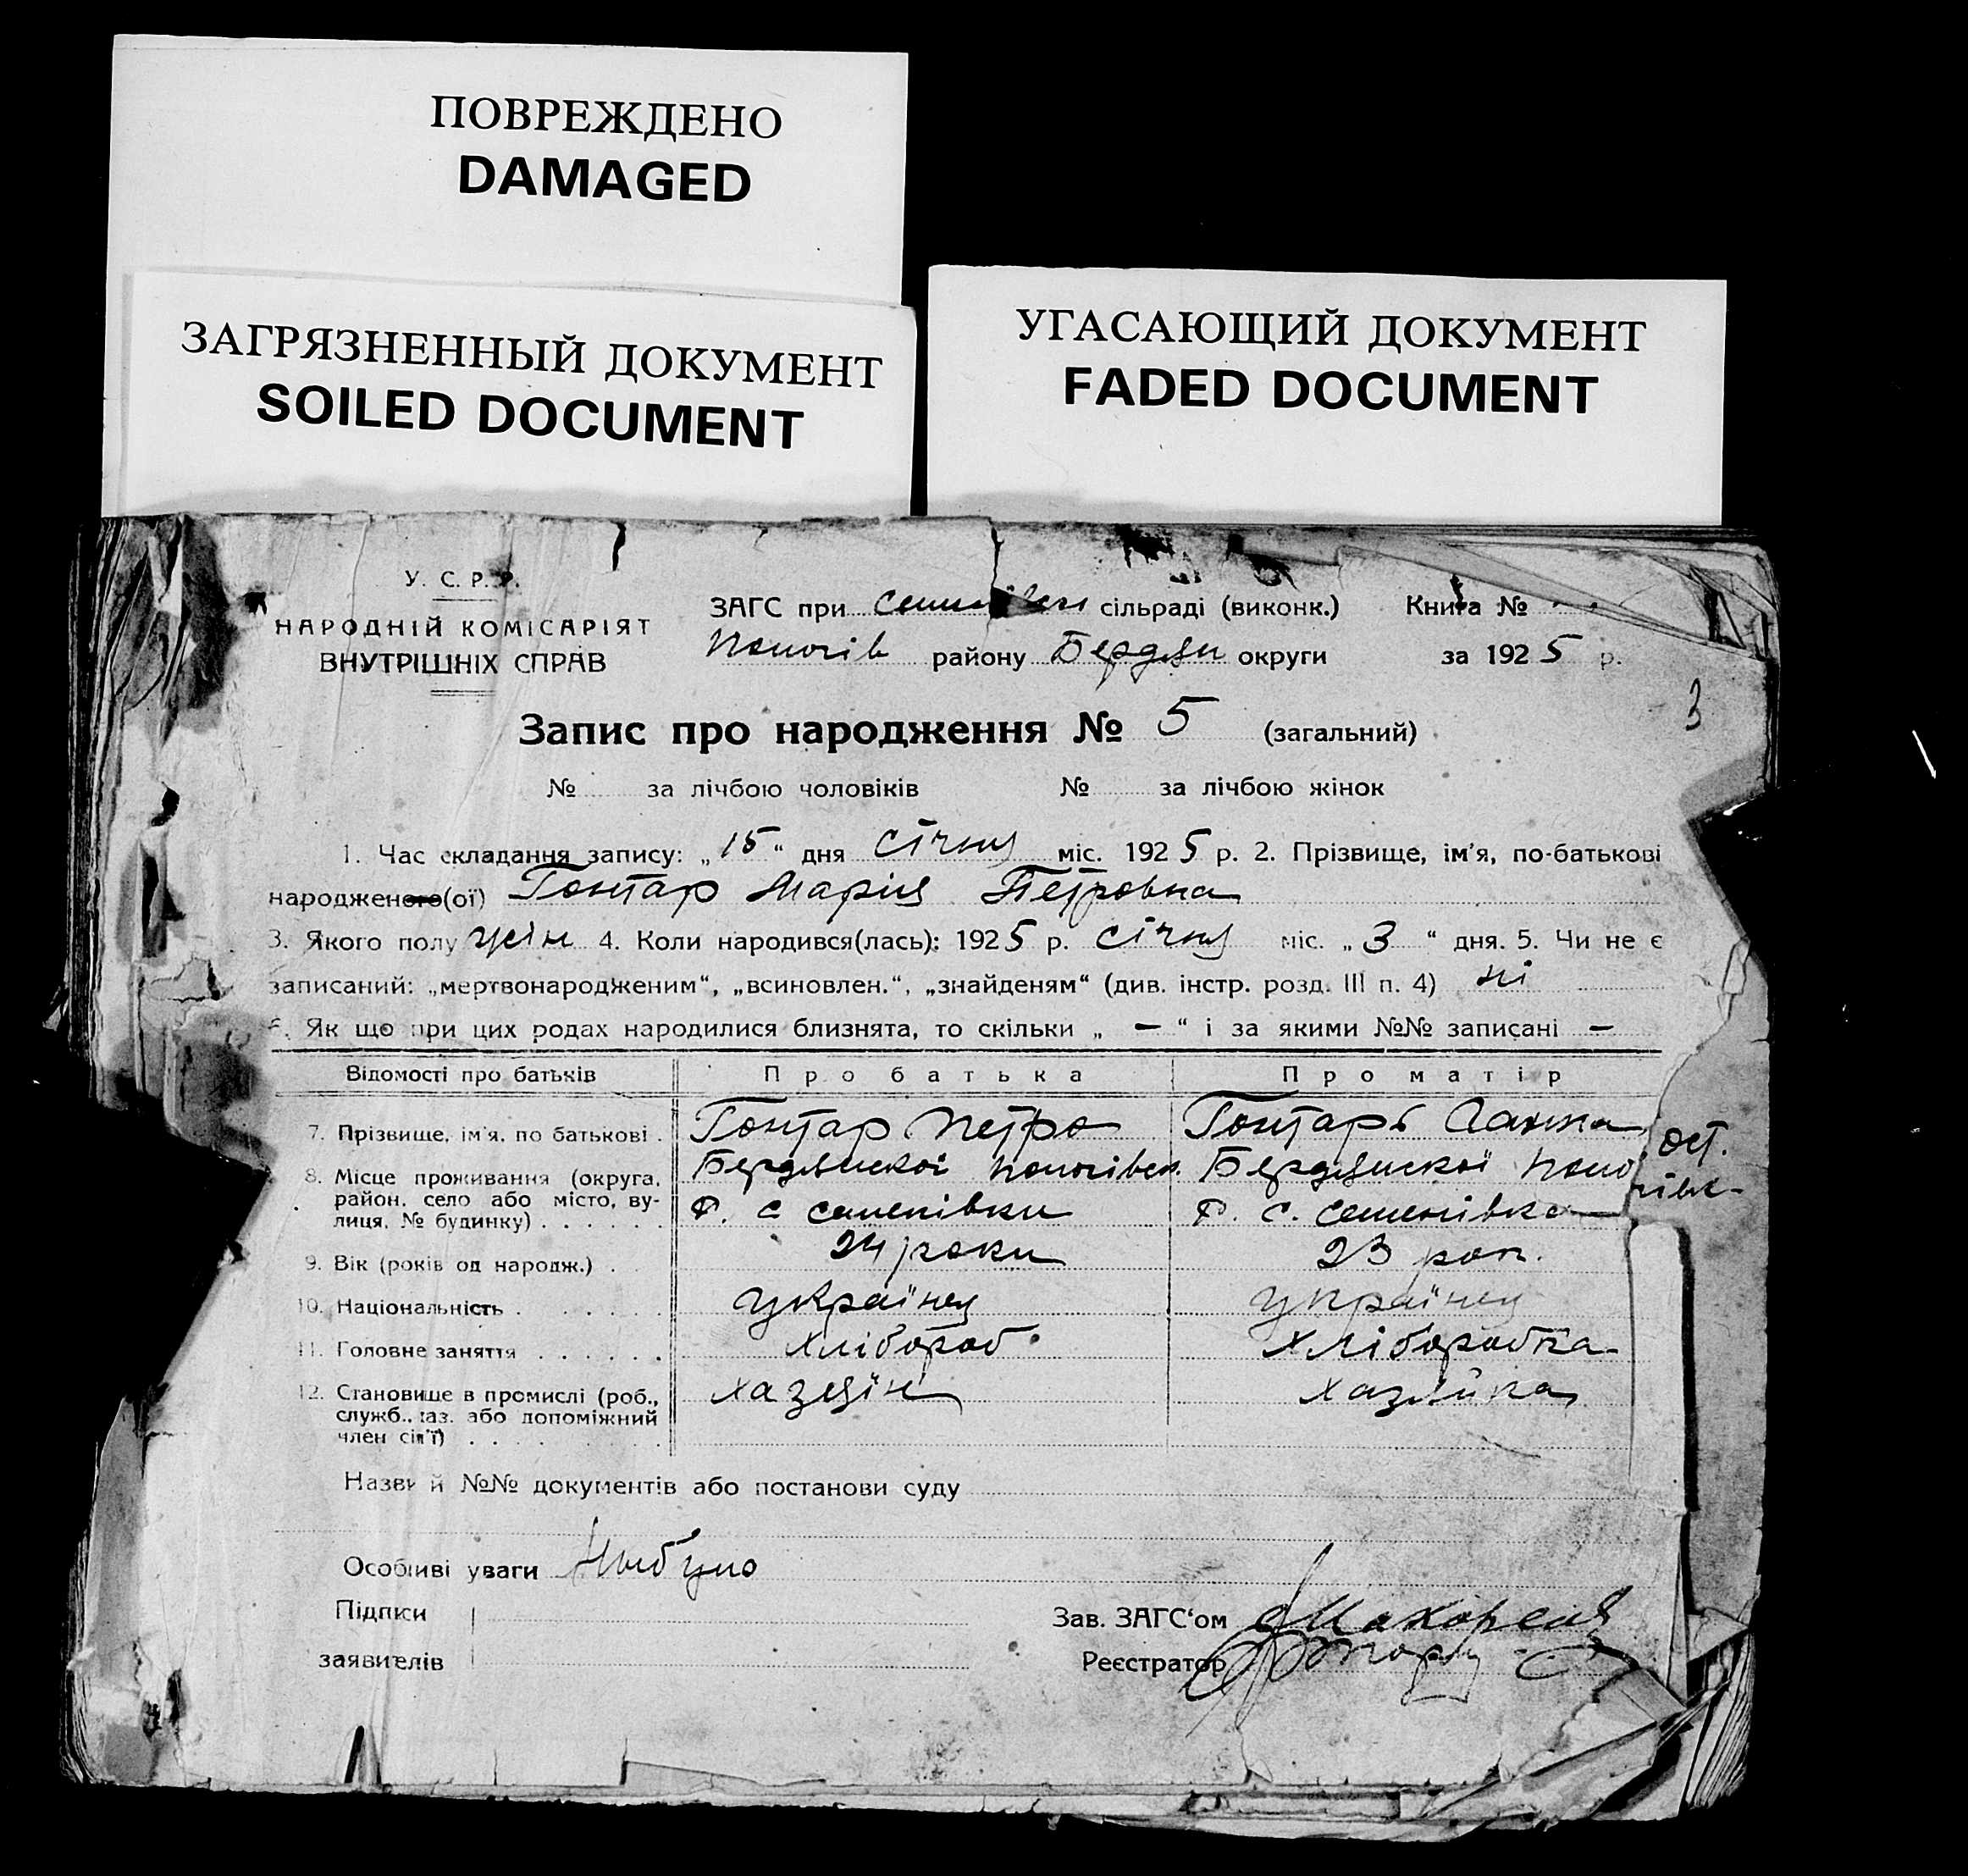 ПОВРЕЖДЕНО
DAMAGED
ЗАГРЯЗНЕННЫЙ ДОКУМЕНТ
SOILED DOCUMENT
УГАСАЮЩИЙ ДОКУМЕНТ
FADED DOCUMENT
У. С. Р. Р.
НАРОДНІЙ КОМІСАРІЯТ
ВНУТРІШНІХ СПРАВ
ЗАГС при сільраді (виконк.) Книга №
Пологів району Бердян округи за 1925 р.
3
Запис про народження № 5 (загальний)
№ за лічбою чоловіків № за лічбою жінок
1. Час складання запису: „15“ дня січня міс. 1925 р. 2. Прізвище, ім'я, по-батькові
народженого(ої) Гонтар Марія Петровна
3. Якого полу жін 4. Коли народився(лась): 1925 р. січня міс. „3“ дня. 5. Чи не є
записаний: „мертвонародженим“, „всиновлен.“, „знайденям“ (див. інстр. розд. III п. 4) ні
6. Як що при цих родах народилися близнята, то скільки „ — “ і за якими №№ записані —
Відомості про батьків Про батька Про матір
7. Прізвище, ім'я, по батькові . Гонтар Петро Гонтарь Ганна
8. Місце проживання (округа, район, село або місто, вулиця, № будинку) . . . . . . Бердянської Пологівськ. Бердянської Поло
Р. с Семенівки Р. с. Семенівка
9. Вік (років од народж.) . 24 роки 23 рок.
10. Національність . . . . . українец українец
11. Головне заняття . . . . . . Хлібороб Хліборобка
12. Становище в промислі (роб., служб., хаз. або допоміжний член сім'ї) . . . . . . хазяїн хазяйка
Назви й №№ документів або постанови суду
Особливі уваги Небуло
Підписи Зав. ЗАГС'ом
заявителів Реєстратор